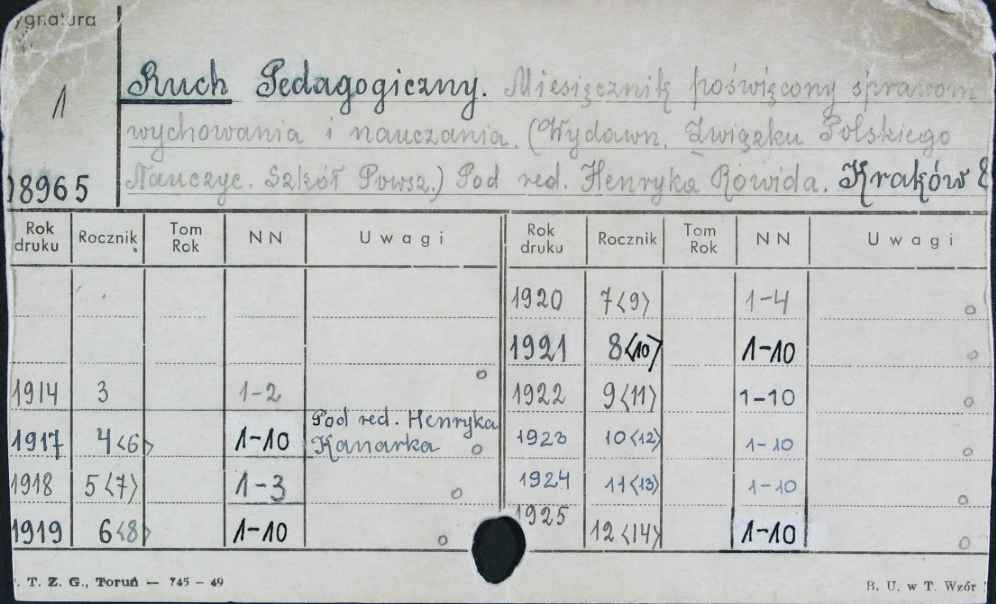 ygnatura
1
8965
Ruch Pedagogiczny. Miesięcznik poświęcony sprawom
wychowania i nauczania. (Wydawn. Związku Polskiego
Nauczyc. Szkół Powsz.) Pod red. Henryka Rowida. Kraków 8
Rok druku Rocznik Tom Rok NN Uwagi Rok druku Rocznik Tom Rok NN Uwagi
1920 7<9> 1-4
1921 8<10> 1-10
1914 3 1-2 1922 9<11> 1-10
1917 4<6> 1-10 Pod red. Henryka Kanarka 1923 10<12> 1-10
1918 5<7> 1-3 1924 11<13> 1-10
1919 6<8> 1-10 1925 12<14> 1-10
. T. Z. G., Toruń — 745 - 49 B. U. w T. Wzór